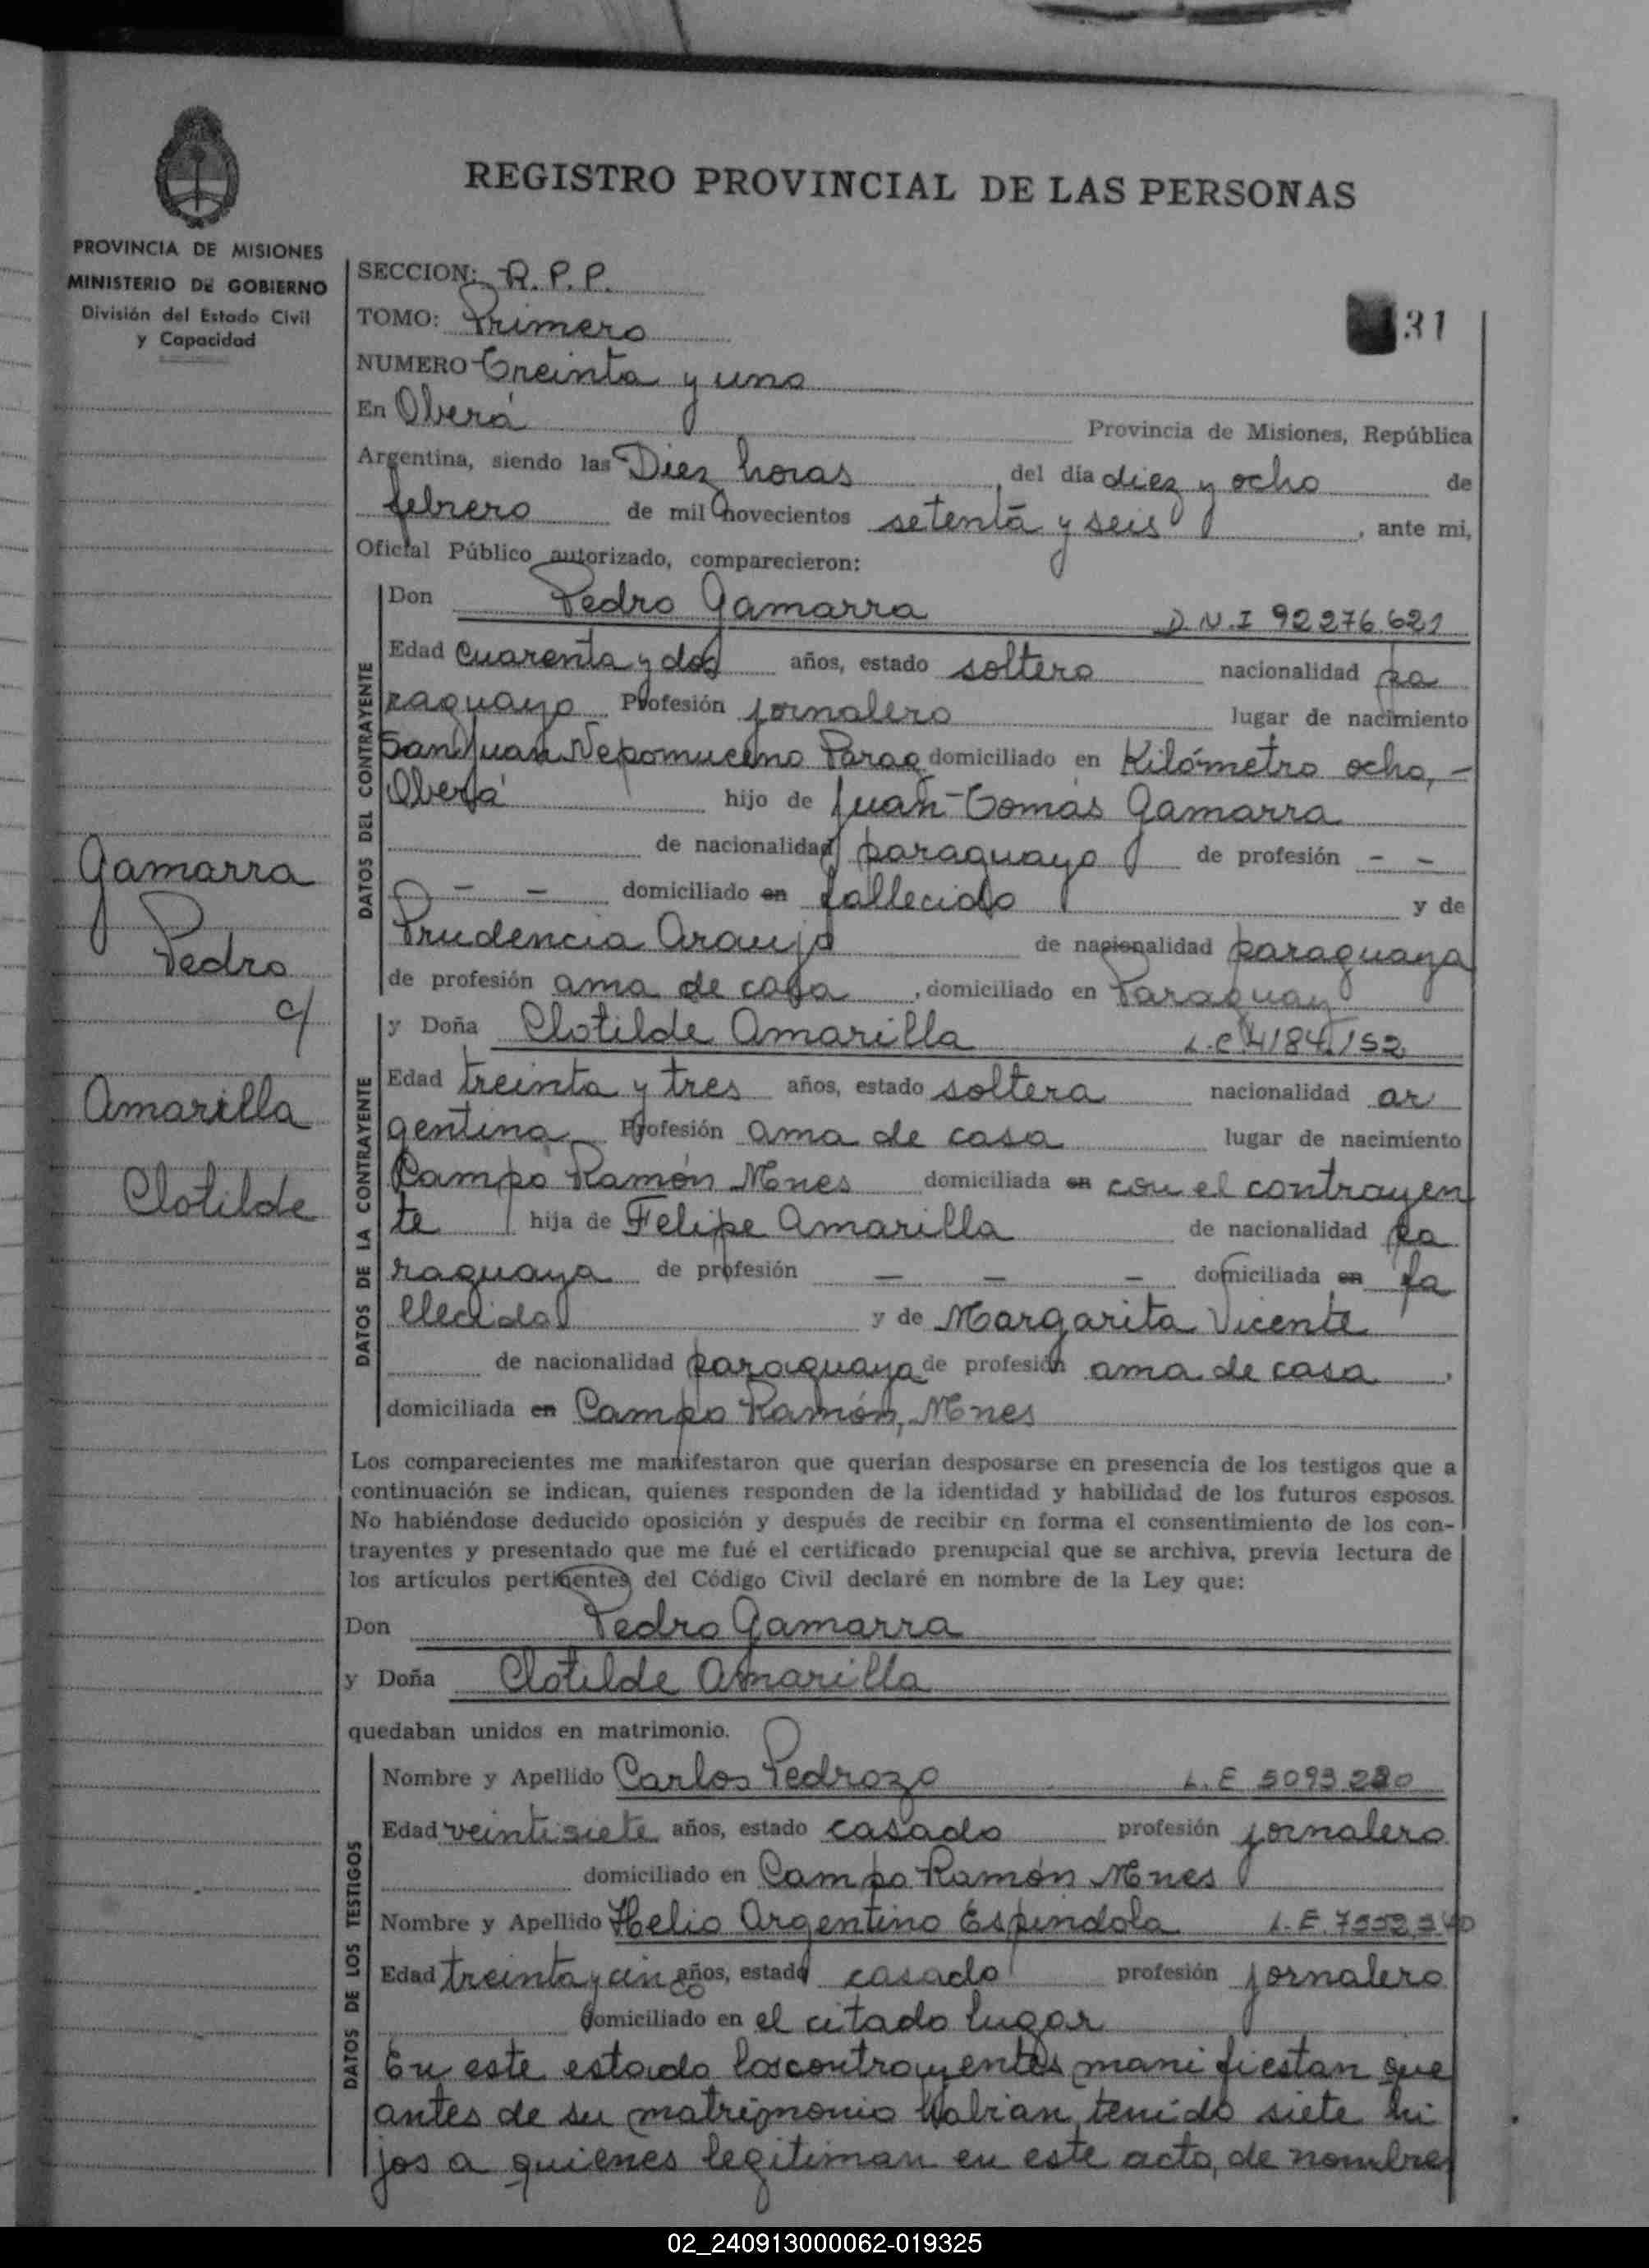 REGISTRO PROVINCIAL DE LAS PERSONAS
PROVINCIA DE MISIONES
MINISTERIO DE GOBIERNO
División del Estado Civil
y Capacidad
SECCION: R.P.P.
TOMO: Primero
31
NUMERO Treinta y uno
En Oberá Provincia de Misiones, República
Argentina, siendo las Diez horas, del día diez y ocho de
febrero de mil novecientos setenta y seis, ante mi,
Oficial Público autorizado, comparecieron:
DATOS DEL CONTRAYENTE
Don Pedro Gamarra D.N.I 92276.621
Edad Cuarenta y dos años, estado soltero nacionalidad pa
raguayo Profesión jornalero lugar de nacimiento
San Juan Nepomuceno Parag domiciliado en Kilómetro ocho, -
Oberá hijo de Juan Tomás Gamarra
de nacionalidad paraguayo de profesión - -
- - domiciliado en fallecido y de
Prudencia Araujo de nacionalidad paraguaya
de profesión ama de casa, domiciliado en Paraguay
Gamarra
Pedro
c/
Amarilla
Clotilde
DATOS DE LA CONTRAYENTE
y Doña Clotilde Amarilla L.C. 4184.152
Edad treinta y tres años, estado soltera nacionalidad ar
gentina Profesión ama de casa lugar de nacimiento
Campo Ramón Mnes domiciliada en con el contrayen
te hija de Felipe Amarilla de nacionalidad pa
raguaya de profesión - - - domiciliada en fa
llecido y de Margarita Vicente
de nacionalidad paraguaya de profesión ama de casa,
domiciliada en Campo Ramón, Mnes
Los comparecientes me manifestaron que querían desposarse en presencia de los testigos que a
continuación se indican, quienes responden de la identidad y habilidad de los futuros esposos.
No habiéndose deducido oposición y después de recibir en forma el consentimiento de los con-
trayentes y presentado que me fué el certificado prenupcial que se archiva, previa lectura de
los artículos pertinentes del Código Civil declaré en nombre de la Ley que:
Don Pedro Gamarra
y Doña Clotilde Amarilla
quedaban unidos en matrimonio.
DATOS DE LOS TESTIGOS
Nombre y Apellido Carlos Pedrozo L.E 5093
Edad veintisiete años, estado casado profesión jornalero
domiciliado en Campo Ramón Mnes
Nombre y Apellido Helio Argentino Espíndola L.E.
Edad treinta y cinco años, estado casado profesión jornalero
domiciliado en el citado lugar
En este estado los contrayentes manifiestan que
antes de su matrimonio habian tenido siete hi
jos a quienes legitiman en este acto, de nombres
02_240913000062-019325